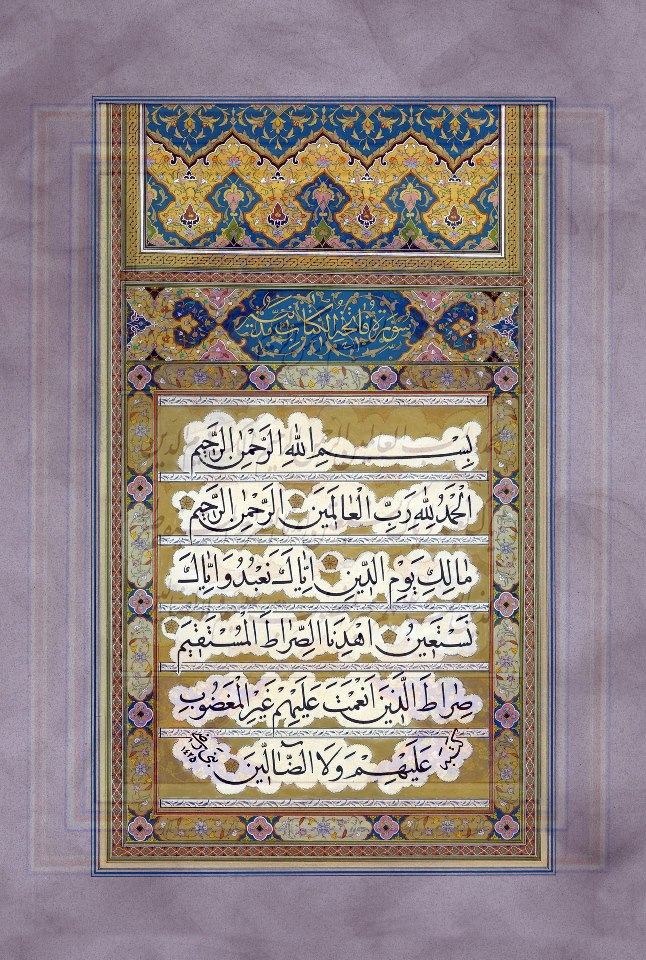 سورة فاتحة الكتاب
بِسْمِ اللهِ الرَّحْمٰنِ الرَّحِيمِ
الْحَمْدُ لِلّٰهِ رَبِّ الْعَالَمِينَ الرَّحْمٰنِ الرَّحِيمِ
مَالِكِ يَوْمِ الدِّينِ اِيَّاكَ نَعْبُدُ وَاِيَّاكَ
نَسْتَعِينُ اهْدِنَا الصِّرَاطَ الْمُسْتَقِيمَ
صِرَاطَ الَّذِينَ اَنْعَمْتَ عَلَيْهِمْ غَيْرِ الْمَغْضُوبِ
عَلَيْهِمْ وَلَا الضَّالِّينَ
١٤٢٥